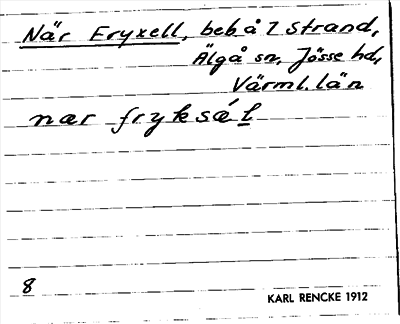 När Fryxell, beb å 2 Strand,
Älgå sn, Jösse hd,
Värml. län
nær fryksǽl
8
KARL RENCKE 1912